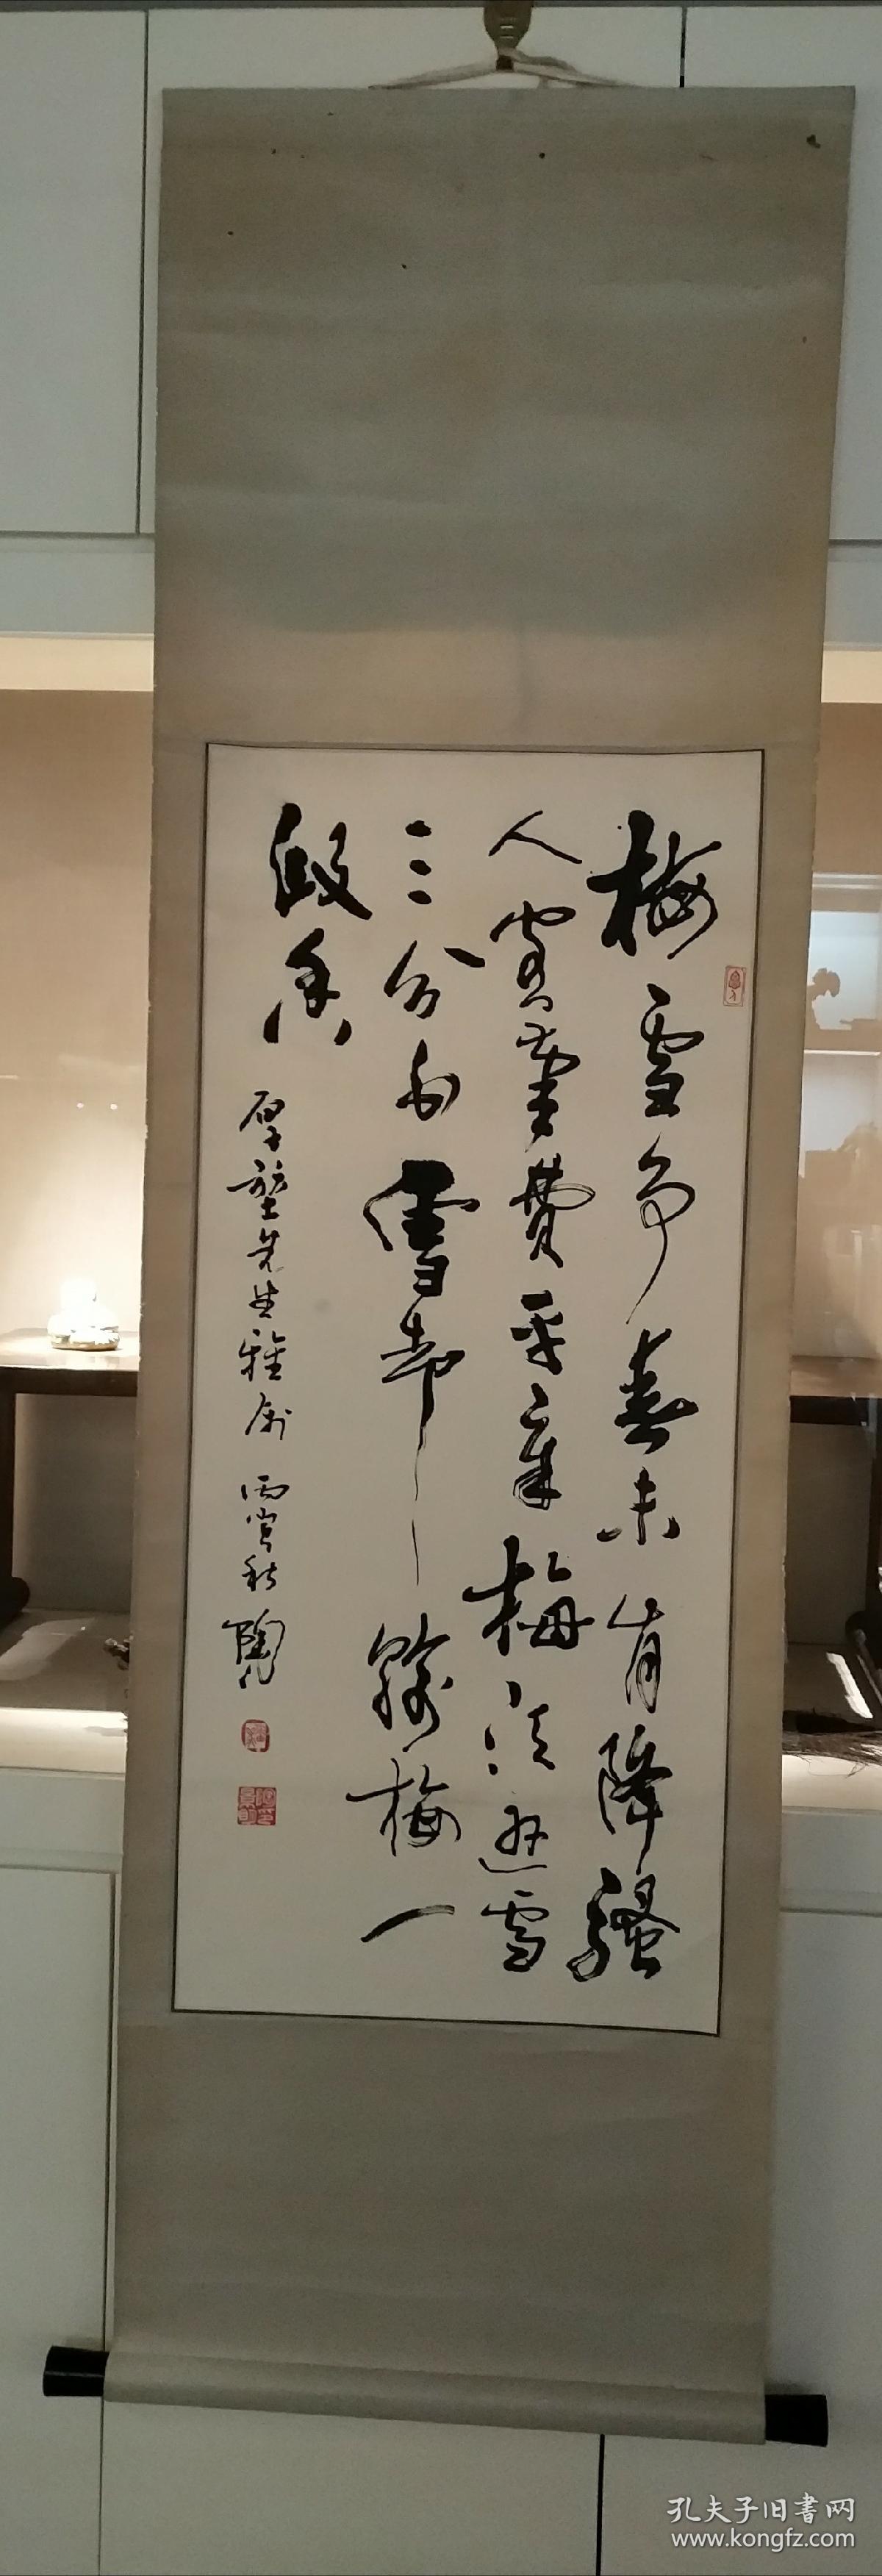 梅雪争春未肯降騷
人閣筆費平章梅須遜雪
三分白雪却輸梅一
段香
厚 先生雅屬 丙寅秋 陶
孔夫子旧書网
www.kongfz.com